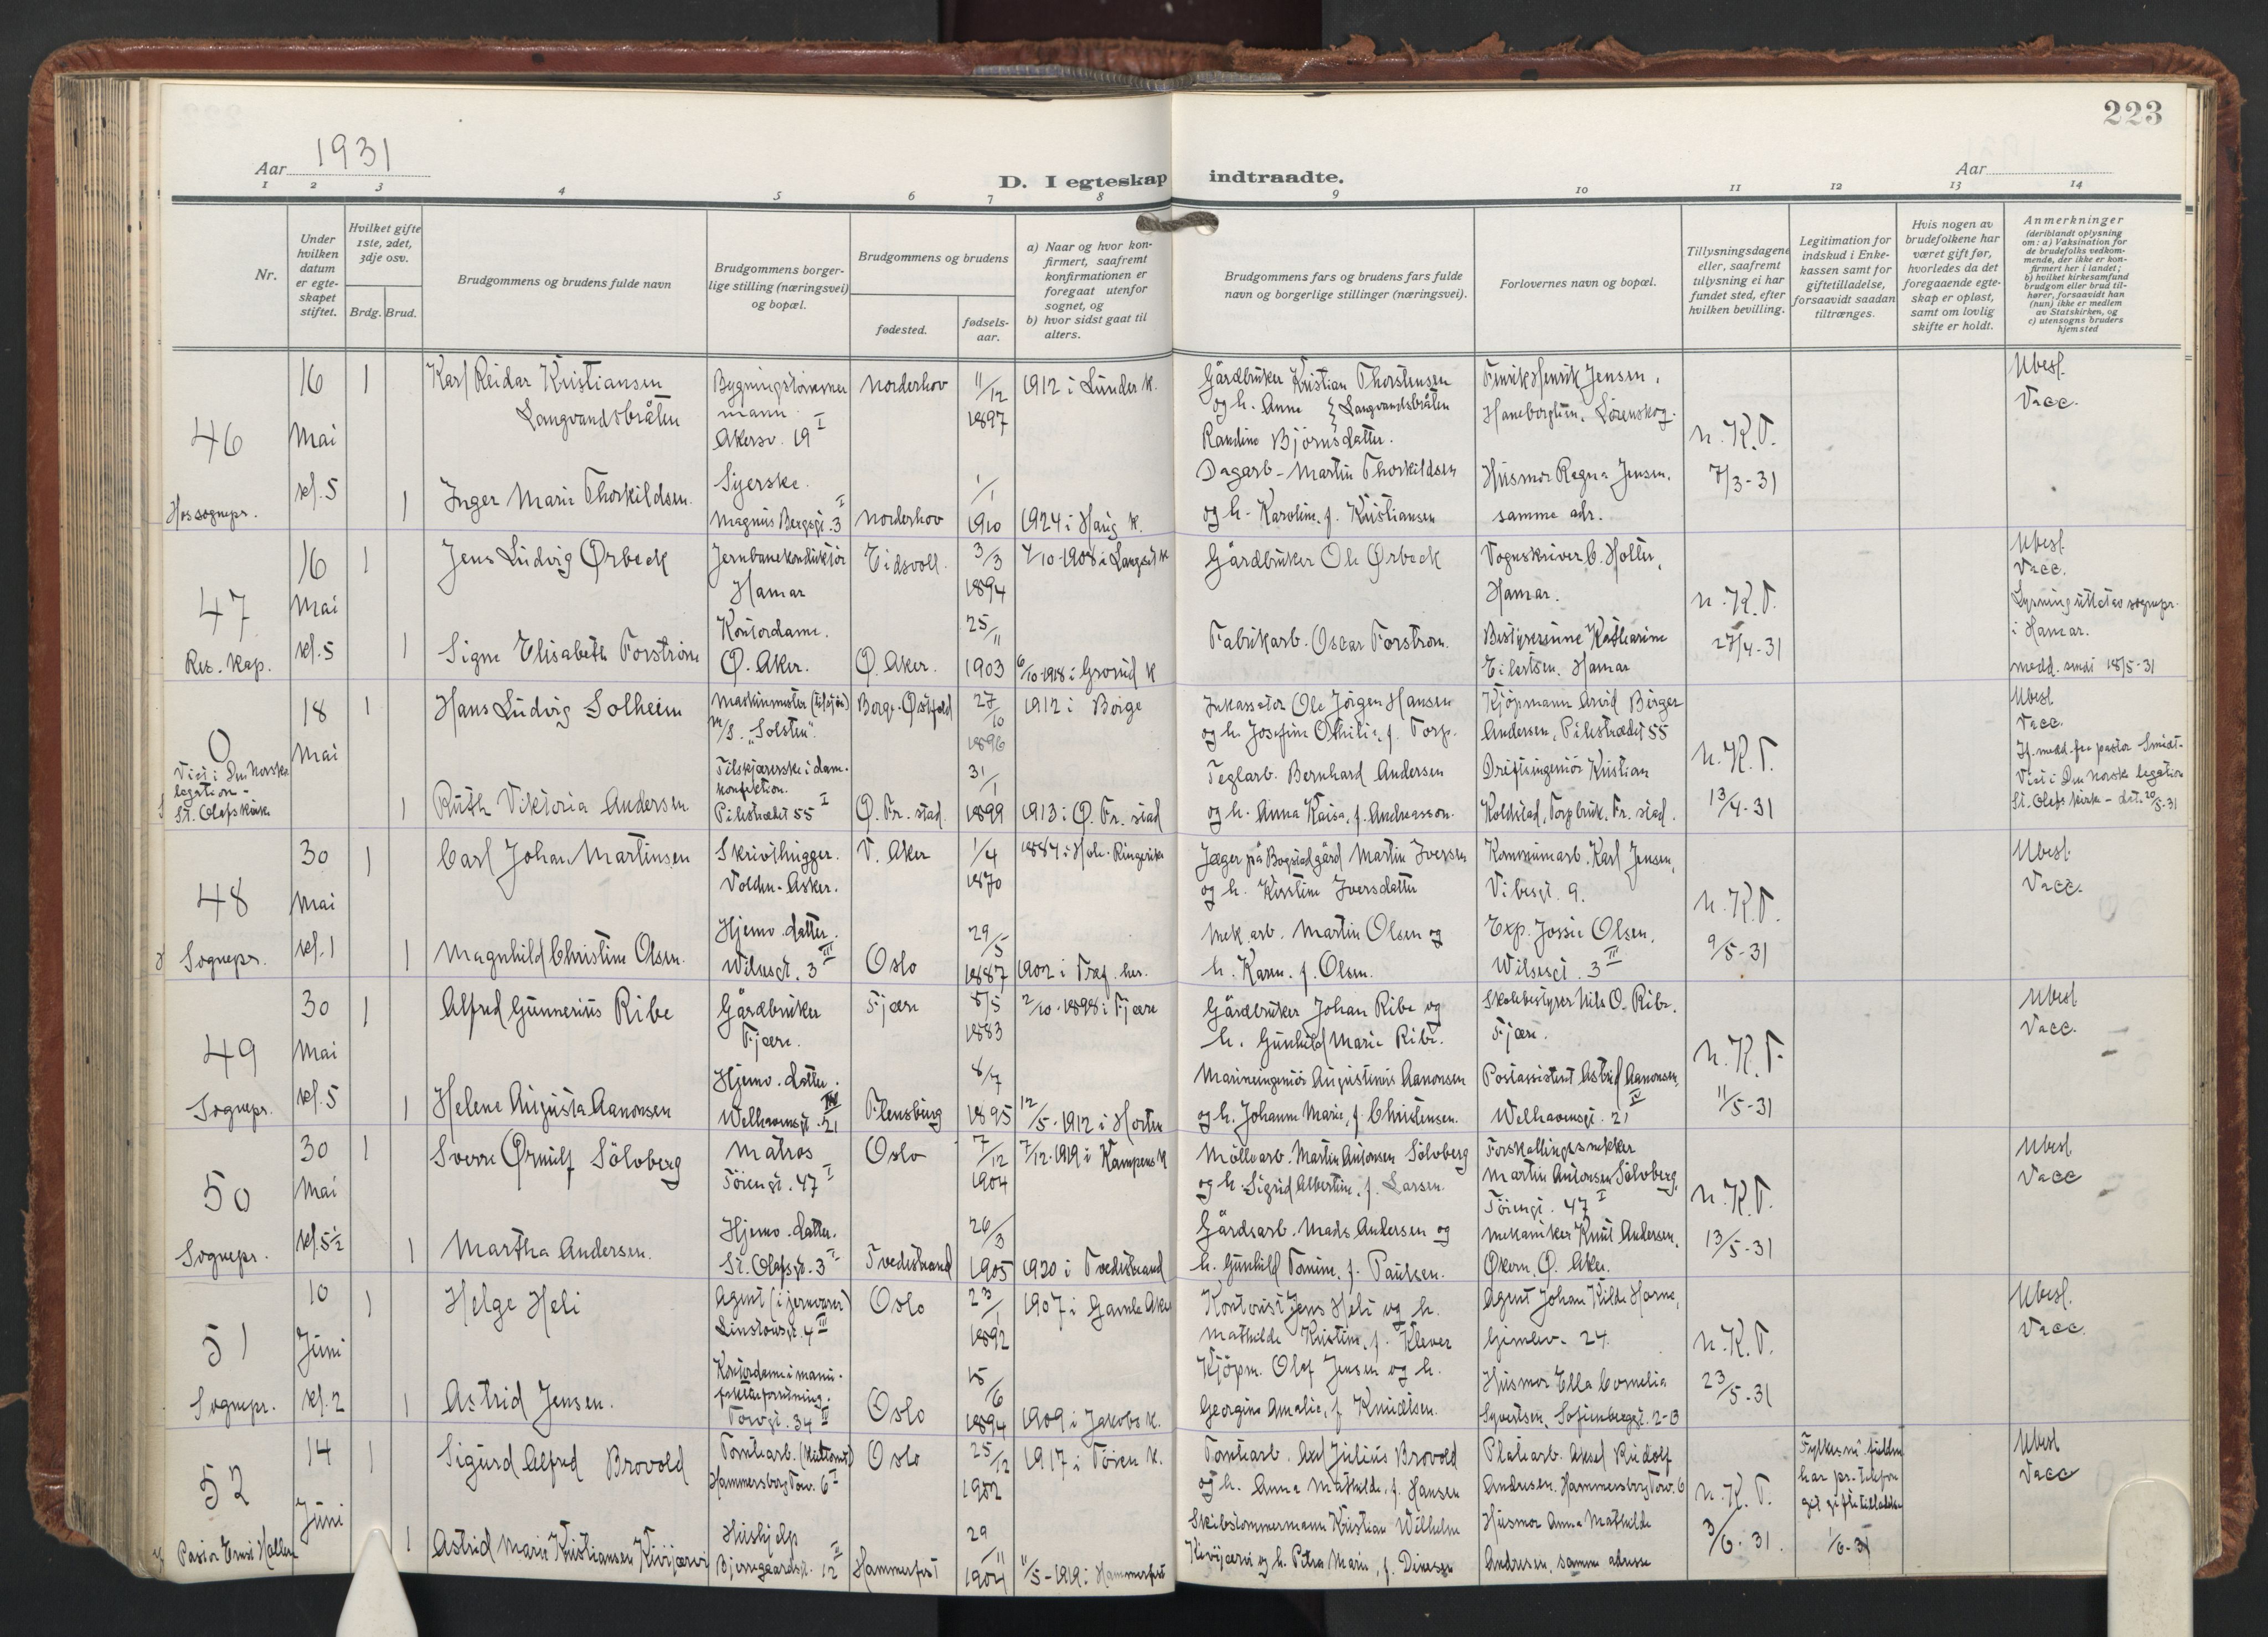 223
Aar 1931
D. I egteskap indtraadte.
Aar
1 2 3 4 5 6 7 8 9 10 11 12 13 14
Nr.
Under hvilken datum er egteskapet stiftet.
Hvilket gifte 1ste, 2det, 3dje osv.
Brdg. Brud.
Brudgommens og brudens fulde navn
Brudgommens borgerlige stilling (næringsvei) og bopæl.
Brudgommens og brudens
fødested.
fødselsaar.
a) Naar og hvor konfirmert, saafremt konfirmationen er foregaat utenfor sognet, og
b) hvor sidst gaat til alters.
Brudgommens fars og brudens fars fulde navn og borgerlige stillinger (næringsvei).
Forlovernes navn og bopæl.
Tillysningsdagene eller, saafremt tillysning ei har fundet sted, efter hvilken bevilling.
Legitimation for indskud i Enkekassen samt for giftetilladelse, forsaavidt saadan tiltrænges.
Hvis nogen av brudefolkene har været gift før, hvorledes da det foregaaende egteskap er opløst, samt om lovlig skifte er holdt.
Anmerkninger
(deriblandt oplysning om: a) Vaksination for de brudefolks vedkommende, der ikke er konfirmert her i landet;
b) hvilket kirkesamfund brudgom eller brud tilhører, forsaavidt han (hun) ikke er medlem av Statskirken, og
c) utensogns bruders hjemsted
46
Hos sognepr.
16 Mai kl. 5
1
Karl Reidar Kristiansen
Langvandsbråten
Bygningstømmermann.
Akersv. 19 I
Norderhov
11/12 1897
1912 i Lunder k.
Gårdbruker Kristian Thorstensen
og h. Anne } Langvandsbråten
Randine Bjørnsdatter.
Fenrik Henrik Jensen,
Haneborgveien, Lørenskog.
n. K. T.
7/3-31
Ubesl.
Vacc.
1
Inger Marie Thorkildsen.
Syerske.
Magnus Bergsgt. 3 I
Norderhov
1/1 1910
1924 i Haug k.
Dagarb. Martin Thorkildsen
og h. Karoline, f. Kristiansen
Husmor Regna Jensen,
samme adr.
47
Res. kap.
16 Mai kl. 5
1
Jens Ludvig Ørbeck
Jernbanekonduktør
Hamar
Eidsvoll
3/3 1894
4/10-1908 i Langset k
Gårdbruker Ole Ørbeck
Vognskriver C. Holter,
Hamar.
n. K. T.
27/4-31
Ubesl.
Vacc.
Lysning utført av sognepr.
i Hamar.
medd. sendt 18/5-31
1
Signe Elisabeth Forstrøm
Kontordame.
Ø. Aker.
Ø. Aker.
25/11 1903
6/10-1918 i Grorud k
Fabrikarb. Oscar Forstrøm.
Bestyrerinne Katharine
Eilertsen. Hamar
0
Viet i Den Norske
legation -
St. Olafs kirke
18 Mai
1
Hans Ludvig Solheim
Maskinmester (tilsjøs)
M/S. "Solsten".
Borge. Østfold
27/10 1896
1912 i Borge
Inkassator Ole Jørgen Hansen
og h. Josefine Othilie, f. Torp.
Kjøpmann Arvid Birger
Andersen, Pilestrædet 55
n. K. T.
13/4-31
Ubesl
Vacc.
If. medd. fra pastor Smidt-
Viet i Den norske legation
St. Olafs kirke - dat. 20/5-31
1
Ruth Viktoria Andersen
Tilskjærerske i damekonfektion.
Pilestrædet 55 I
Ø. Fr. stad.
31/1 1899
1913 i Ø. Fr. stad
Teglarb. Bernhard Andersen
og h. Anna Kaisa, f. Andreasson.
Driftsingeniør Kristian
Koldstad, Torpbruk, Fr. stad.
48
Sognepr.
30 Mai kl. 1
1
Carl Johan Martinsen
Skrivthugger.
Volden - Asker.
V. Aker
1/4 1870
1884 i Hole. Ringerike
Jæger på Bogstad gård Martin Iversen
og h. Kirstine Iversdatter
Kommunearb. Karl Jensen,
Vibesgt. 9.
n. K. T.
9/5-31
Ubesl.
Vacc.
1
Magnhild Christine Olsen.
Hjemv. datter.
Wilsesgt. 3 III
Oslo
29/5 1887
1902 i Tref. her.
Mek. arb. Martin Olsen og
h. Karen. f. Olsen.
Exp. Jossie Olsen.
Wilsesgt. 3 III
49
Sognepr.
30 Mai kl. 5
1
Alfred Gunnerius Ribe
Gårdbruker
Fjære.
Fjære
5/5 1883
2/10-1898 i Fjære
Gårdbruker Johan Ribe og
h. Gunhild Marie Ribe.
Skolebestyrer Nils O. Ribe.
Fjære.
n. K. T.
11/5-31
Ubesl
Vacc.
1
Helene Augusta Aanonsen
Hjemv. datter.
Welhavensgt. 21 IV
Flensburg
8/7 1895
12/5-1912 i Horten
Marineingeniør Augustinus Aanonsen
og h. Johanne Marie, f. Christensen.
Postassistent Astrid Aanonsen,
Welhavensgt. 21 IV
50
Sognepr.
30 Mai kl. 5½
1
Sverre Ørnulf Sölvberg
Matros
Töiengt. 47 I
Oslo
7/12 1904
7/12-1919 i Kampens k
Möllearb. Martin Antonsen Sölvberg
og h. Sigrid Albertine, f. Larsen.
Forskallingssnekker
Martin Antonsen Sölvberg,
Töiengt. 47 I
n. K. T.
13/5-31
Ubesl
Vacc
1
Martha Andersen.
Hjemv. datter.
St. Olafsgt. 3 I
Tvedestrand
26/3 1905
1920 i Tvedestrand
Gårdsarb. Mads Andersen og
h. Gunhild Tomine, f. Paulsen.
Mekaniker Knut Andersen,
Økern, Ø. Aker.
51
Sognepr.
10 Juni kl. 2
1
Helge Heli
Agent (i jernvarer)
Linstowsgt. 4 III
Oslo
23/1 1892
1907 i Gamle Aker
Kontorist Jens Heli og h.
Mathilde Kristine, f. Klever
Agent Johan Kilde Harne,
Gimlev. 24.
n. K. T.
23/5-31
Ubesl.
Vacc.
1
Astrid Jensen.
Kontordame i manufakturforretning.
Torvgt. 34 II
Oslo
15/6 1894
1909 i Jakobs k.
Kjöpm. Olaf Jensen og h.
Georgine Amalie, f. Knudtsen.
Husmor Ella Cornelia
Syvertsen, Sofienberggt. 2-B
52
Pastor Ernst Hallen
14 Juni
1
Sigurd Alfred Brovold
Tomtearb.
Hammersborg Torv. 6 I
Oslo
25/12 1902
1917 i Töien k.
Tomtearb. Axel Julius Brovold
og h. Anna Mathilde, f. Hansen
Platearb. Aksel Rudolf
Andersen. Hammersborg Torv. 6
n. K. T.
3/6-31.
har pr. telefon
git giftetilladelse
1/6-31
Ubesl
Vacc
1
Astrid Marie Kristiansen Kivijærvi
Hushjelp
Bjerregaardsgt. 12 II
Hammerfest
29/11 1904
11/5-1919 i Hammerfest
Skibstømmermann Kristian Wilhelm
Kivijærvi og h. Petra Marie, f. Dinesen
Husmor Anna Mathilde
Andresen, samme adresse